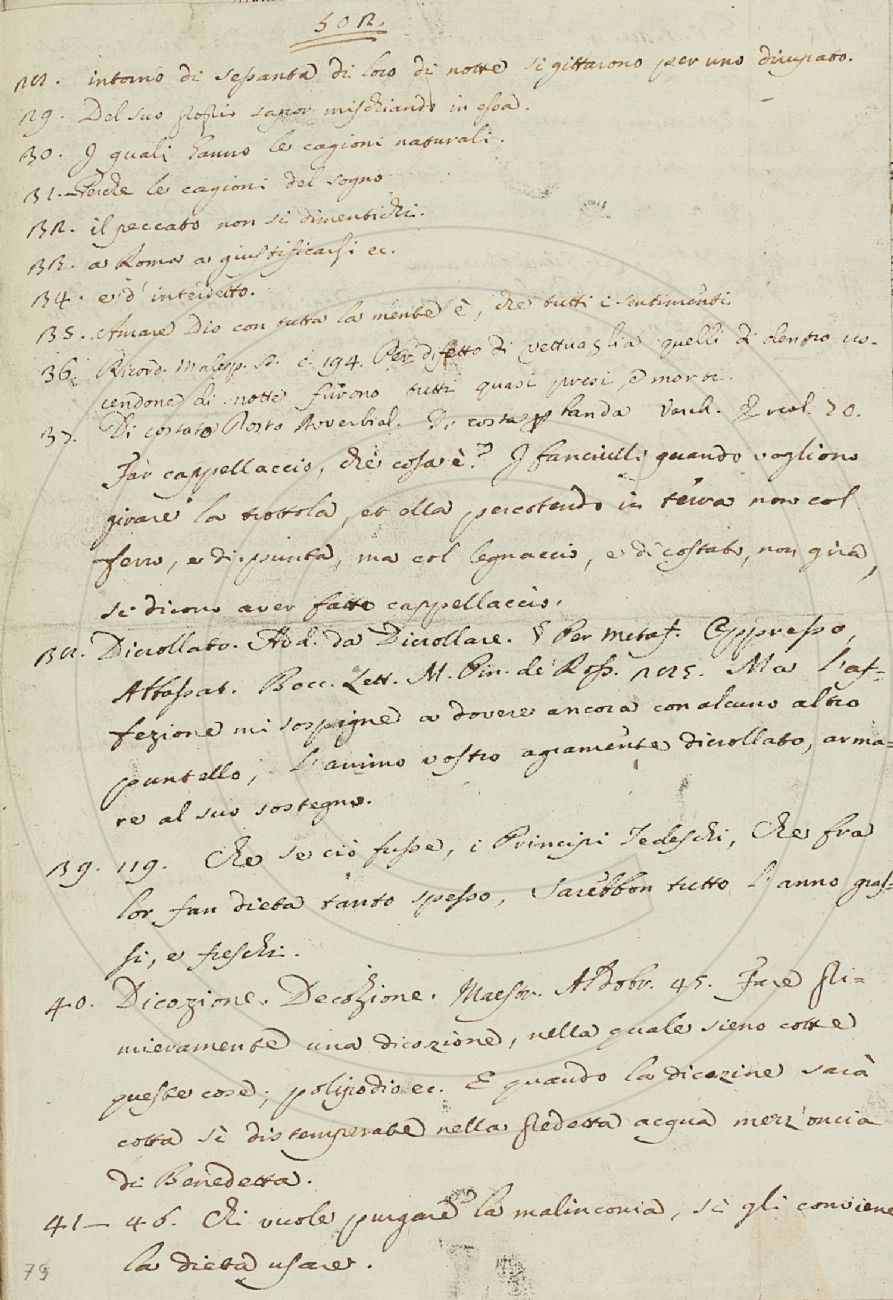 502.
28. intorno di sessanta di loro di notte si gittarono per uno dirupato.
29. Del suo propio sapor mischiando in essa.
30. I quali hanno le cagioni naturali.
31. Perche le cagioni del sogno
32. il peccato non si dimentichi.
33. a Roma a giustificarsi ec.
34. e d' interdetto.
35. Amare Dio con tutta la mente è, che tutti i sentimenti
36. Ricord. Malesp. c. 194. Per difetto di vettuaglia quelli di dentro uscendone
di notte furono tutti quasi presi, e morti.
37. Di costato Posto Avverbial. Di costa, banda Varch. Ercol. 70.
Far cappellaccio, che cosa è? I fanciulli quando vogliono
girare la trottola, et ella percotendo in terra non col
ferro, e di punta, ma col legnaccio, e di costato, non gira,
si dicono aver fatto cappellaccio.
38. Dicrollato. Add. da Dicrollare. § Per metaf. Oppresso,
Abbassat. Bocc. Lett. M. Pin. de' Ross. 285. Ma l'af-
fezione mi sospigne a dovere ancora con alcuno altro
puntello, l'animo vostro agramente dicrollato, arma=
re al suo sostegno.
39. 119. Che se ciò fusse, i Principi Tedeschi, Che fra
lor fan dieta tanto spesso, Sarebbon tutto l'anno gras=
si, e freschi.
40. Dicozione. Decozione. Maestr. Aldobr. 45. Fare pri=
mieramente una dicozione, nella quale sieno cotte
queste cose; polipodio ec. E quando la dicozine sarà
cotta sì distemperate nella predetta acqua mezz'oncia
di Benedetta.
41 — 46. Chi vuole purgare la malinconia, sì gli conviene
la dieta usare.
79